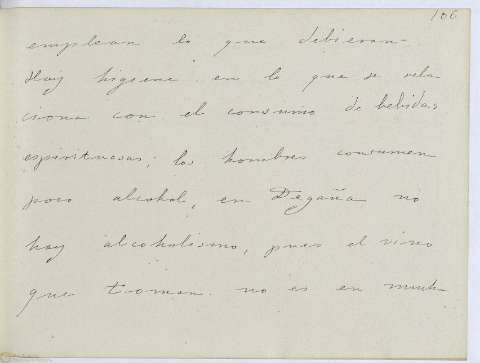 106
emplean lo que debieran.
Hay higiene en lo que se rela
ciona con el consumo de bebidas
espirituosas; los hombres consumen
poco alcohol, en Degaña no
hay alcoholismo, pues el vino
que toman no es en much